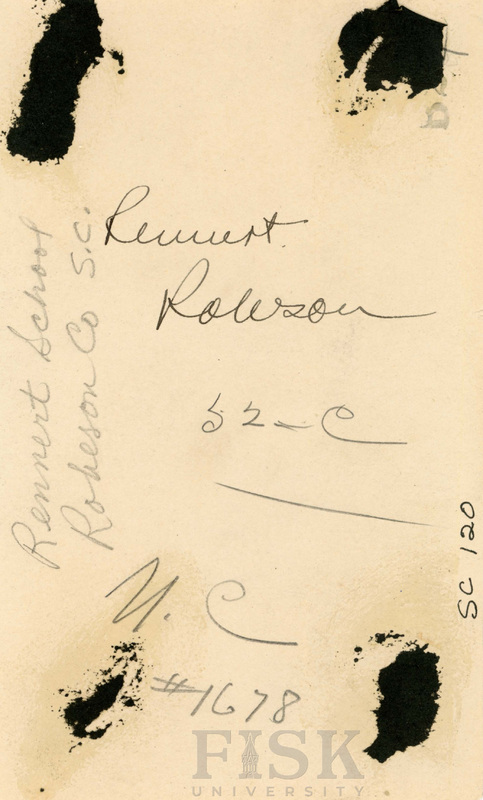 Rennert
Robeson
52-C
N. C
#1678
Rennert School
Robeson Co S.C.
SC 120
FISK
UNIVERSITY